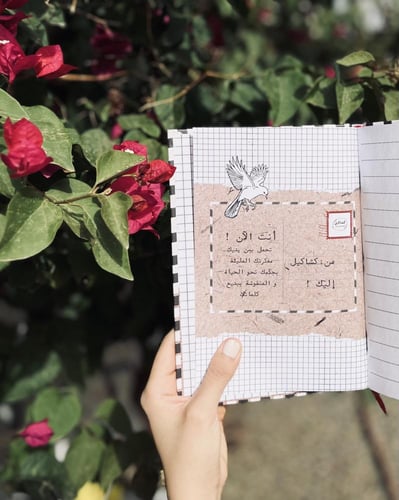 أنت الآن !
تحمل بين يديك
مفكرتك المليئة
بحكيك نحو الحياة
و المنقوشة ببديع
كلماتك
من : كشاكيل
إليك !